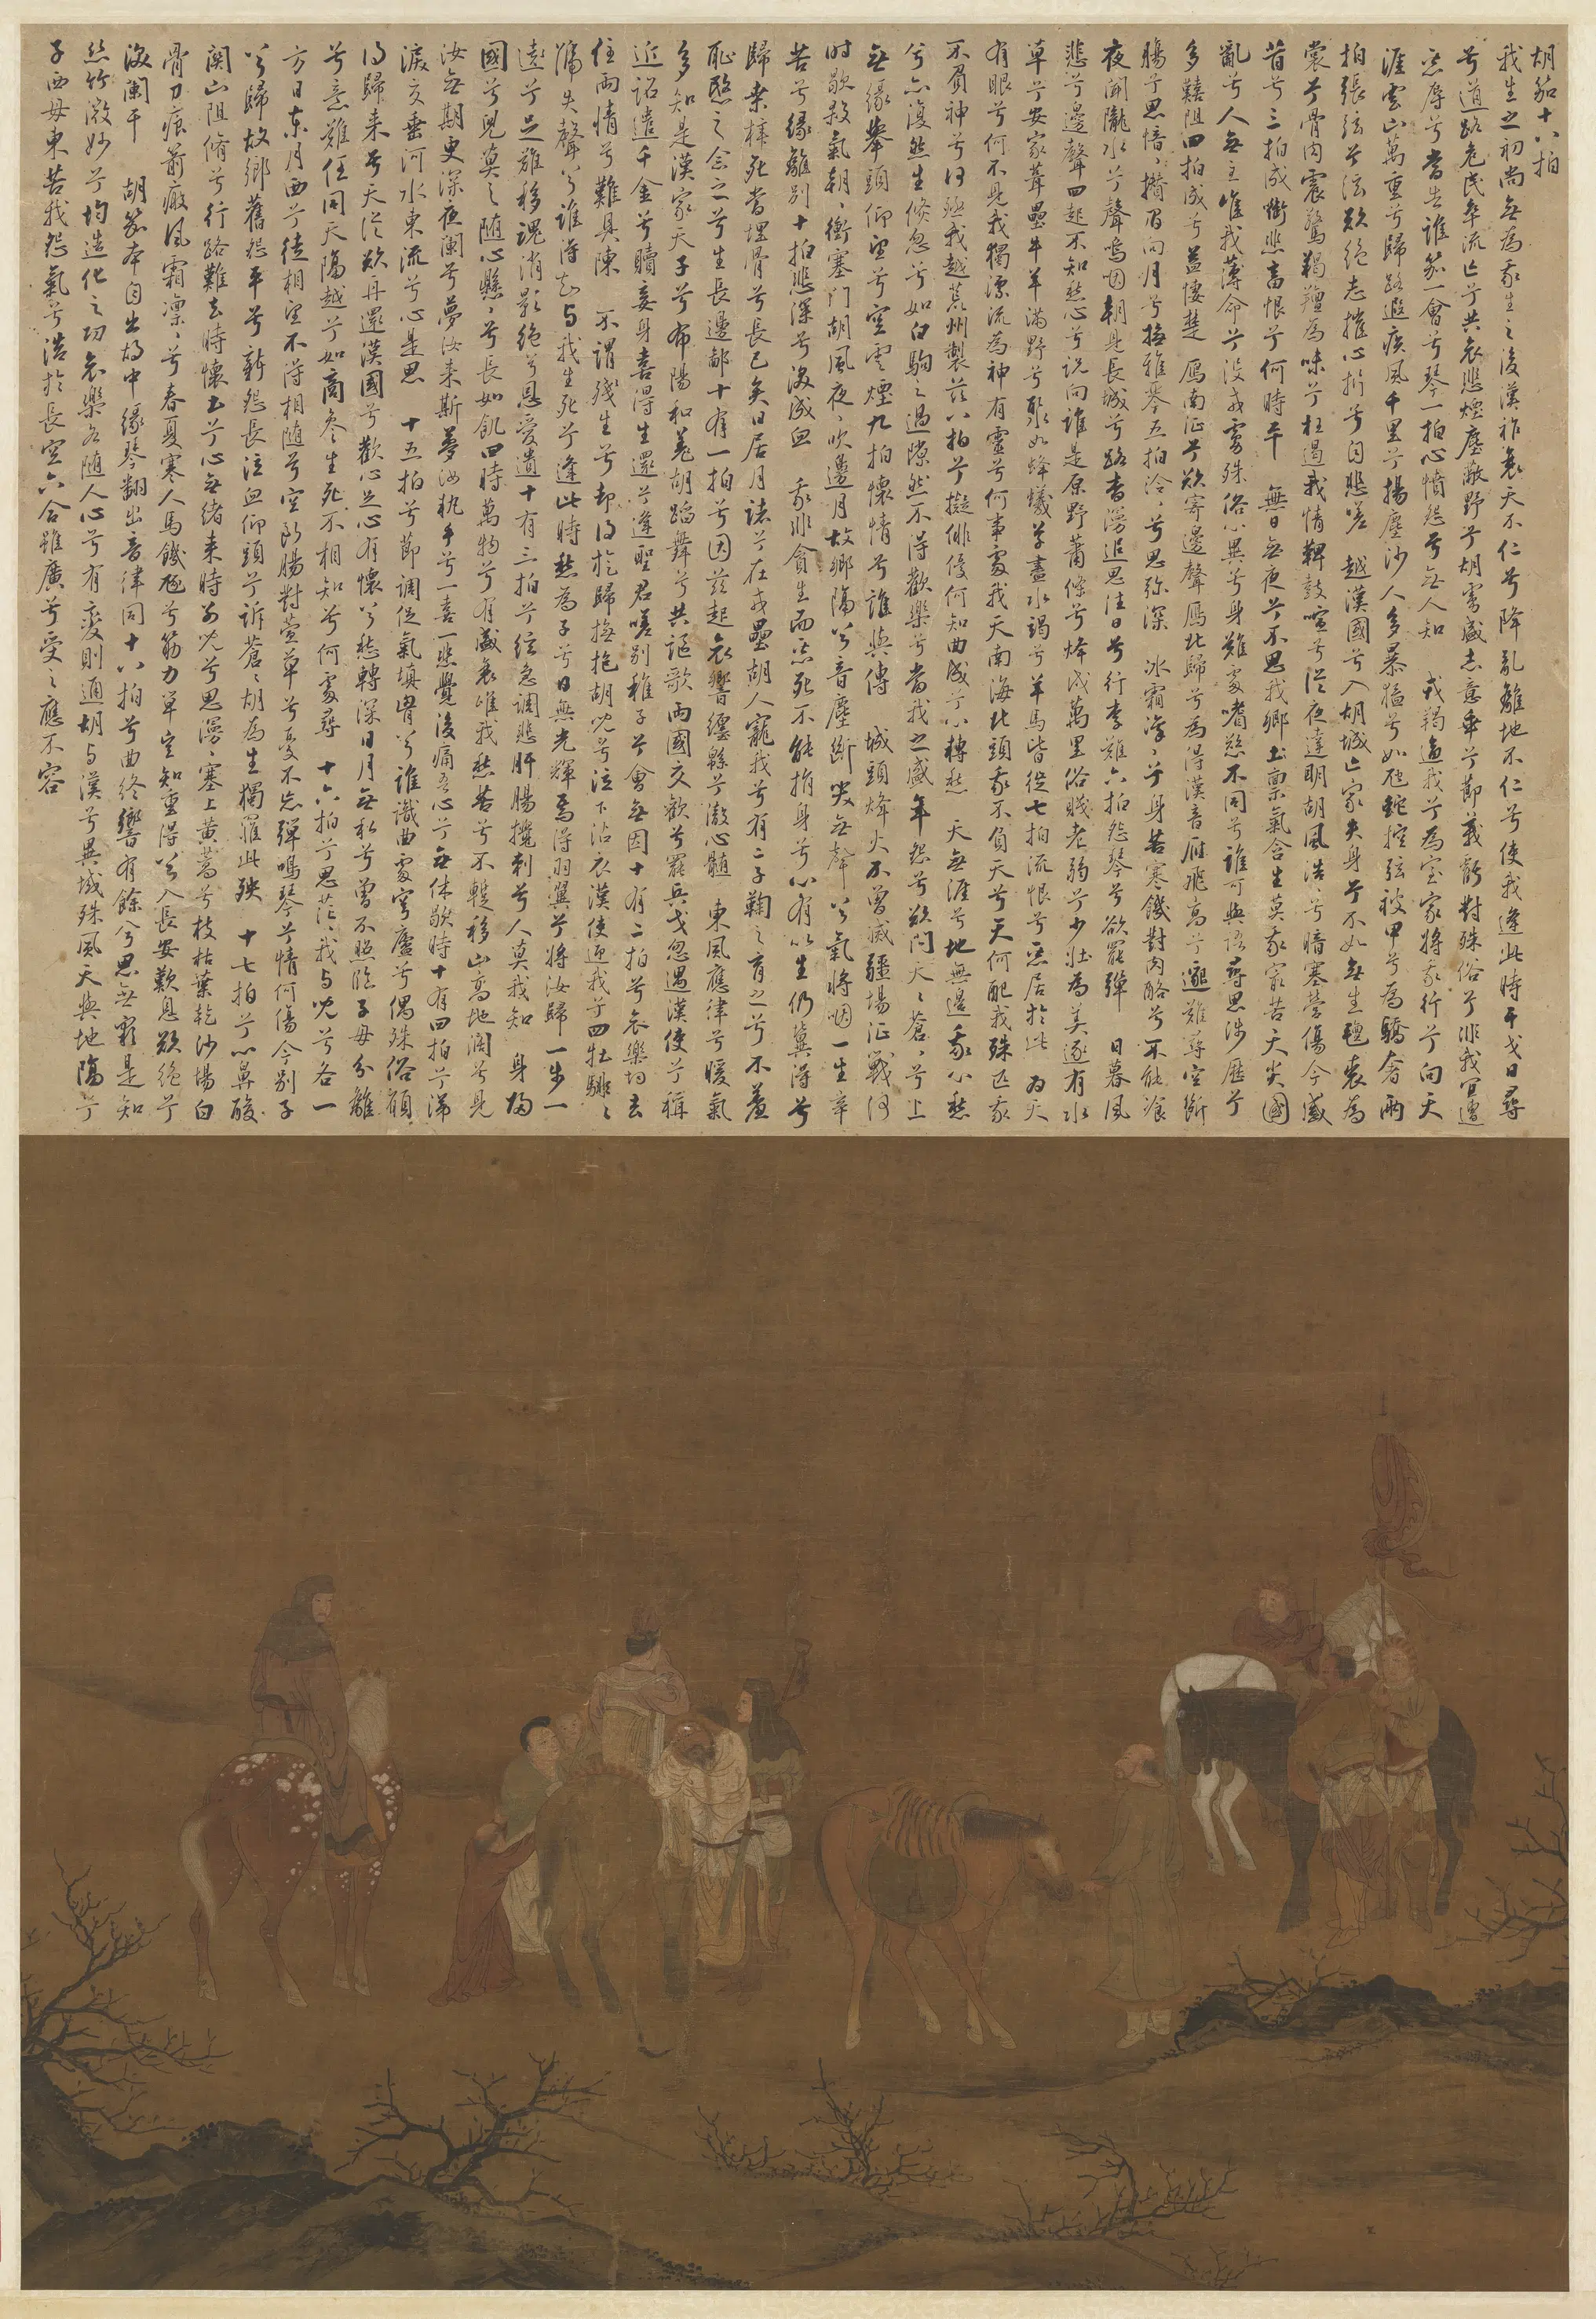 胡笳十八拍
我生之初尚無為我生之後漢祚衰天不仁兮降亂離地不仁兮使我逢此時干戈日尋
兮道路危民卒流亡兮共哀悲煙塵蔽野兮胡虜盛志意乖兮節義虧對殊俗兮非我宜遭
惡辱兮當告誰笳一會兮琴一拍心憤怨兮無人知 戎羯逼我兮為室家將我行兮向天
涯雲山萬重兮歸路遐疾風千里兮揚塵沙人多暴猛兮如虺蛇控弦被甲兮為驕奢兩
拍張弦兮弦欲絕志摧心折兮自悲嗟 越漢國兮入胡城亡家失身兮不如無生氈裘為
裳兮骨肉震驚羯羶為味兮枉遏我情鞞鼓喧兮從夜達明胡風浩〻兮暗塞營傷今感
昔兮三拍成銜悲畜恨兮何時平 無日無夜兮不思我鄉土禀氣含生莫我最苦天災國
亂兮人無主唯我薄命兮沒戎虜殊俗心異兮身難處嗜慾不同兮誰可與語尋思涉歷兮
多艱阻四拍成兮益悽楚 雁南征兮欲寄邊聲雁北歸兮為得漢音雁飛高兮邈難尋空斷
腸兮思愔〻攢眉向月兮撫雅琴五拍泠〻兮思弥深 冰霜凜〻兮身苦寒饑對肉酪兮不能飡
夜聞隴水兮聲嗚咽朝見長城兮路杳漫追思往日兮行李難六拍悲琴兮欲罷彈 日暮風
悲兮邊聲四起不知愁心兮說向誰是原野蕭條兮烽戍萬里俗賤老弱兮少壯為美逐有水
草兮安家葺壘牛羊滿野兮聚如蜂蟻草盡水竭兮羊馬皆徙七拍流恨兮惡居於此 為天
有眼兮何不見我獨漂流為神有靈兮何事處我天南海北頭我不負天兮天何配我殊匹我
不負神兮神何殛我越荒州製茲八拍兮擬俳優何知曲成兮心轉愁 天無涯兮地無邊我心愁
兮亦復然生倏忽兮如白駒之過隙然不得歡樂兮當我之盛年怨兮欲問天〻蒼〻兮上
無緣舉頭仰望兮空雲煙九拍懷情兮誰與傳 城頭烽火不曾滅疆場征戰何
時歇殺氣朝〻衝塞門胡風夜〻吹邊月故鄉隔兮音塵斷哭無聲兮氣將咽一生辛
苦兮緣離別十拍悲深兮淚成血 我非貪生而惡死不能捐身兮心有以生仍冀得兮
歸桑梓死當埋骨兮長已矣日居月諸兮在戎壘胡人寵我兮有二子鞠之育之兮不羞
恥愍之念之兮生長邊鄙十有一拍兮因茲起哀響纏緜兮徹心髓 東風應律兮暖氣
多知是漢家天子兮布陽和羌胡蹈舞兮共謳歌兩國交歡兮罷兵戈忽遇漢使兮稱
近詔遣千金兮贖妾身喜得生還兮逢聖君嗟別稚子兮會無因十有二拍兮哀樂均去
住兩情兮難具陳 不謂殘生兮却得旋歸撫抱胡兒兮泣下沾衣漢使迎我兮四牡騑〻
號失聲兮誰得知與我生死兮逢此時愁為子兮日無光輝焉得羽翼兮將汝歸一步一
遠兮足難移魂消影絕兮恩愛遺十有三拍兮弦急調悲肝腸攪刺兮人莫我知 身歸
國兮兒莫之隨心懸〻兮長如飢四時萬物兮有盛衰唯我愁苦兮不蹔移山高地闊兮見
汝無期更深夜闌兮夢汝來斯夢汝執手兮一喜一悲覺後痛吾心兮無休歇時十有四拍兮涕
淚交垂河水東流兮心是思 十五拍兮節調促氣填胸兮誰識曲處穹廬兮偶殊俗願
得歸來兮天從欲再還漢國兮歡心足心有懷兮愁轉深日月無私兮曾不照臨子母分離
兮意難任同天隔越兮如商參生死不相知兮何處尋 十六拍兮思茫〻我與兒兮各一
方日東月西兮徒相望不得相隨兮空斷腸對萱草兮憂不忘彈鳴琴兮情何傷今別子
兮歸故鄉舊怨平兮新怨長泣血仰頭兮訴蒼〻胡為生獨罹此殃 十七拍兮心鼻酸
關山阻脩兮行路難去時懷土兮心無緒來時別兒兮思漫〻塞上黃蒿兮枝枯葉乾沙場白
骨刀痕箭瘢風霜凜〻兮春夏寒人馬饑豗兮筋力單豈知重得兮入長安歎息欲絕兮
淚闌干 胡笳本自出胡中緣琴翻出音律同十八拍兮曲終響有餘兮思無窮是知
絲竹微妙兮均造化之功哀樂各隨人心兮有變則通胡與漢兮異域殊風天與地隔兮
子西母東苦我怨氣兮浩於長空六合雖廣兮受之應不容